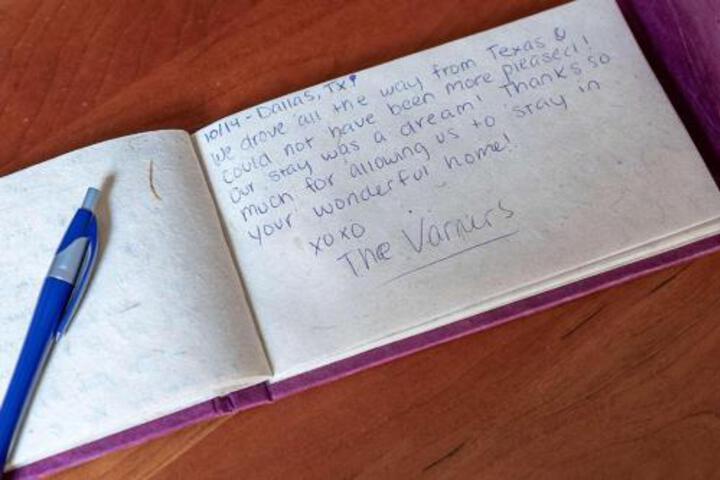 10/14 - Dallas, TX!
We drove all the way from Texas &
could not have been more pleased!
Our stay was a dream! Thanks so
much for allowing us to stay in
your wonderful home!
xoxo
The Varners